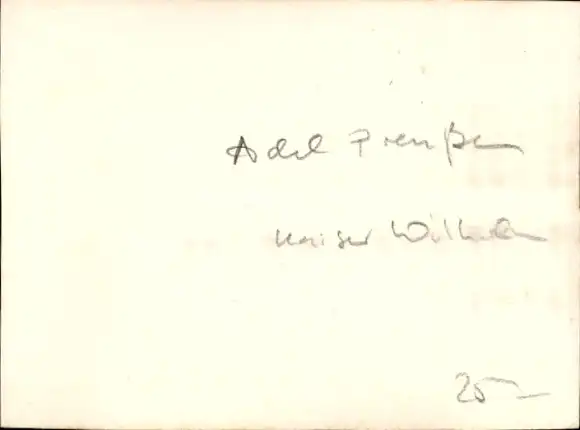 Adel Preußen
Kaiser Wilhelm
25,-